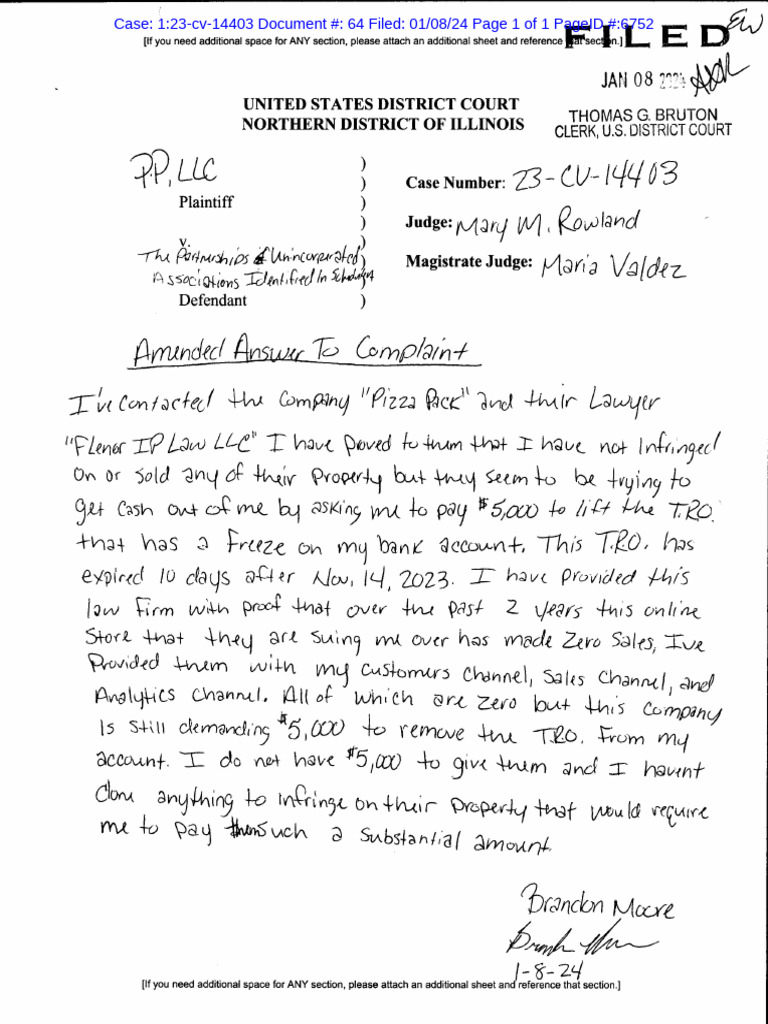 Case: 1:23-cv-14403 Document #: 64 Filed: 01/08/24 Page 1 of 1 PageID #:6752
[If you need additional space for ANY section, please attach an additional sheet and reference that section.]
FILED
EW
JAN 08 2024
THOMAS G. BRUTON
CLERK, U.S. DISTRICT COURT
UNITED STATES DISTRICT COURT
NORTHERN DISTRICT OF ILLINOIS
P.P, LLC )
Plaintiff )
Case Number: 23-CV-14403
v. )
Judge: Mary M. Rowland
The Partnerships & Unincorporated )
Associations Identified In Schedule A
Magistrate Judge: Maria Valdez
Defendant )
Amended Answer To Complaint
I've contacted the company "Pizza Pack" and their Lawyer
"Flener IP Law LLC" I have proved to them that I have not infringed
on or sold any of their property but they seem to be trying to
get cash out of me by asking me to pay $5,000 to lift the T.R.O.
that has a freeze on my bank account. This T.R.O. has
expired 10 days after Nov, 14, 2023. I have provided this
law firm with proof that over the past 2 years this online
store that they are suing me over has made zero sales, I've
Provided them with my customers channel, sales channel, and
Analytics channel. All of which are zero but this company
is still demanding $5,000 to remove the T.R.O. from my
account. I do not have $5,000 to give them and I havent
done anything to infringe on their property that would require
me to pay such a substantial amount.
Brandon Moore
1-8-24
[If you need additional space for ANY section, please attach an additional sheet and reference that section.]